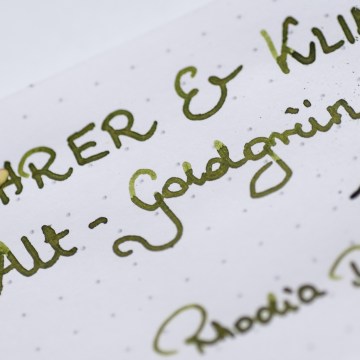 HRER & KLIN
Alt-Goldgrün
Rhodia